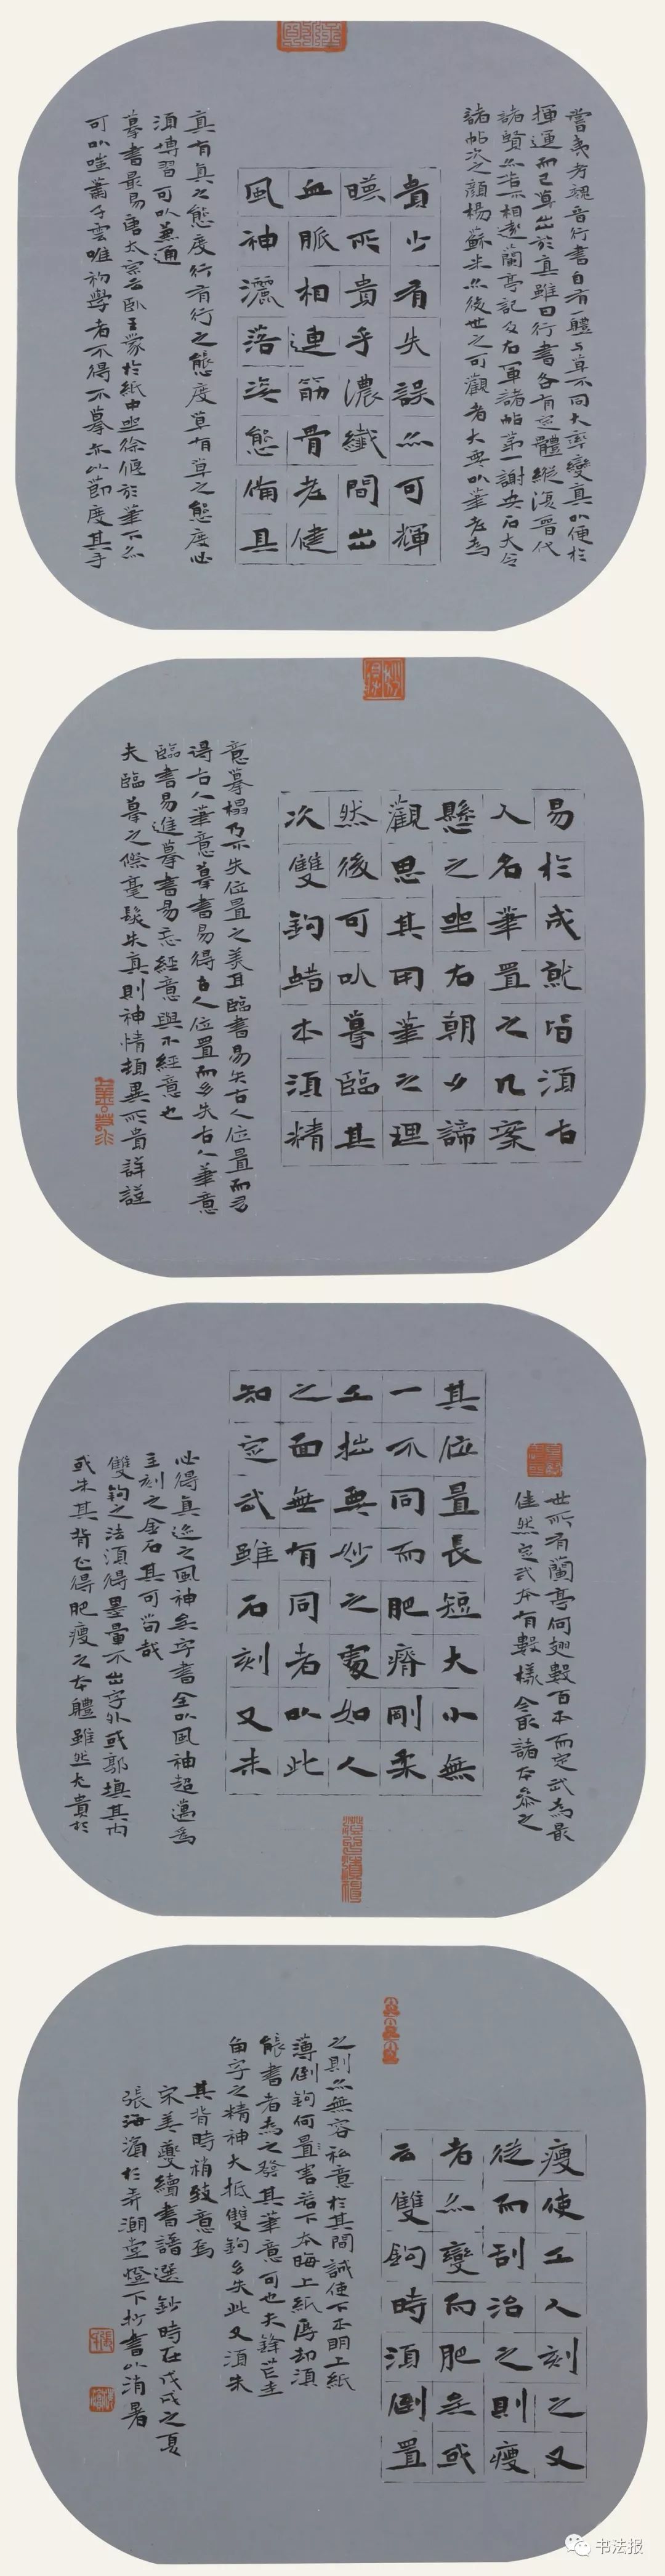 嘗夷考魏晉行書自有一體与草不同大率變真以便於
揮運而已草出於真雖曰行書各有定體縱復晉代
諸賢亦皆不相遠蘭亭記及右軍諸帖第一謝安石大令
諸帖次之顏楊蘇米亦後世之可觀者大要以筆老為
貴少有失誤亦可輝
暎所貴乎濃纖間出
血脈相連筋骨老健
風神灑落姿態備具
真有真之態度行有行之態度草有草之態度必
須博習可以兼通
摹書最易唐太宗云臥王濛於紙中坐徐偃於筆下亦
可以嗤蕭子雲唯初學者不得不摹亦以節度其手
易於成就皆須古
人名筆置之几案
懸之坐右朝夕諦
觀思其用筆之理
然後可以摹臨其
次雙鉤蠟本須精
意摹榻乃不失位置之美耳臨書易失古人位置而多
得古人筆意摹書易得古人位置而多失古人筆意
臨書易進摹書易忘經意與不經意也
夫臨摹之際毫髮失真則神情頓異所貴詳謹
世所有蘭亭何翅數百本而定武為最
佳然定武本有數樣今取諸本參之
其位置長短大小無
一不同而肥瘠剛柔
工拙要妙之處如人
之面無有同者以此
知定武雖石刻又未
必得真迹之風神矣字書全以風神超邁為
主刻之金石其可苟哉
雙鉤之法須得墨暈不出字外或郭填其內
或朱其背正得肥瘦之本體雖然尤貴於
瘦使工人刻之又
從而刮治之則瘦
者亦變而肥矣或
云雙鉤時須倒置
之則亦無容私意於其間誠使下本明上紙
薄倒鉤何置害若下本晦上紙厚却須
能書者為之發其筆意可也夫鋒芒圭
角字之精神大抵雙鉤多失此又須朱
其背時稍致意焉
宋姜夔續書譜選鈔時在戊戌之夏
張海濱於弄潮堂燈下抄書以消暑
书法报